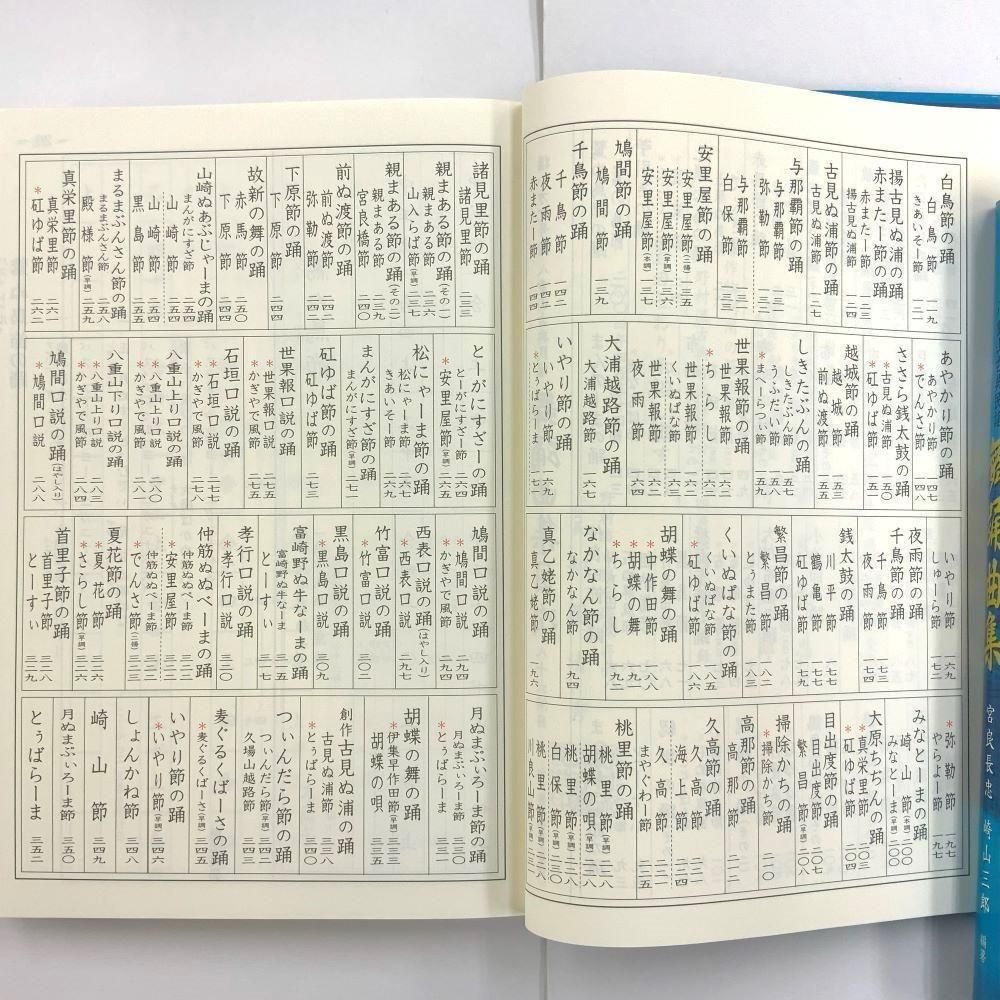 白鳥節の踊
白鳥節 一一九
きあいそー節 一二一
揚古見ぬ浦の踊
赤またー節の踊
赤またー節
揚古見ぬ浦節 一二四
古見ぬ浦節の踊
古見ぬ浦節 一二七
与那覇節の踊
与那覇節 一三一
弥勒節 一三二
与那覇節
白保節 一三三
安里屋節の踊
安里屋節(二揚) 一三五
安里屋節 一三六
安里屋節(本調) 一三七
鳩間節の踊
鳩間節 一三九
千鳥節の踊
千鳥節 一四二
夜雨節 一四二
赤またー節 一四四
あやかり節の踊
あやかり節 一四七
*でんさ節
ささら銭太鼓の踊
*古見ぬ浦節 一五〇
*矼ゆば節 一五一
越城節の踊
越城節 一五三
前ぬ渡節
しきたぶんの踊
しきたぶん節 一五七
うふだい節
*まへーらつぃ節 一五九
世果報節の踊
*ちらし 一六五
世果報節
くいぬぱな節
世果報節
夜雨節 一六六
大浦越路節の踊
大浦越路節 一六七
いやり節の踊
いやり節 一六九
*とぅばらーま 一七一
いやり節 一六九
しゅーら節 一七二
夜雨節の踊
千鳥節の踊
千鳥節
夜雨節
銭太鼓の踊
川平節
鶴亀節
矼ゆば節
繁昌節の踊
繁昌節 一八二
とぅまた節
くいぬぱな節の踊
くいぬぱな節 一八五
*矼ゆば節 一八七
胡蝶の舞の踊
*中作田節 一八八
*胡蝶の舞
*ちらし 一九二
なかなん節の踊
なかなん節 一九四
真乙姥節の踊
真乙姥節 一九六
*弥勒節 一九七
やらよー節 一九七
みなとーまの踊
崎山節(本調) 二〇〇
みなとーま 二〇〇
大原ちぢんの踊
*真栄里節
*矼ゆば節 二〇四
目出度節の踊
目出度節
繁昌節
掃除かちの踊
*掃除かち節 二一〇
高那節の踊
高那節
久高節の踊
久高節
海上節
久高節
まやぐわー節 二一五
桃里節の踊
桃里節(早調) 二一八
胡蝶の唄(早調)
桃里節(本調)
白保節(本調)
桃里節(本調)
川良山節(早調) 二三一
諸見里節の踊
諸見里節 二三三
親まある節の踊(その一)
親まある節 二三六
山入らば節(早調) 二三七
親まある節の踊(その二)
親まある節 二三九
宮良橋節 二四〇
前ぬ渡節の踊
前ぬ渡節 二四二
弥勒節
下原節の踊
下原節 二四四
故新の舞の踊
赤馬節 二五〇
下原節
山崎ぬあぶじゃーまの踊
まんがにすざ節 二五四
山崎節 二五四
山崎節 二五五
黒島節
まるまぶんさん節の踊
まるまぶんさん節 二五八
殿様節(早調) 二五九
真栄里節の踊
真栄里節 二六一
*矼ゆば節 二六二
とーがにすざーの踊
とーがにすざー節 二六四
*安里屋節(早調) 二六五
松にゃーま節の踊
松にゃーま節 二六七
きあいそー節 二六九
まんがにすざ節の踊
まんがにすざ節(早調) 二七一
矼ゆば節の踊
矼ゆば節 二七三
世果報口説の踊
*世果報口説 二七五
*かぎやで風節 二七五
石垣口説の踊
*石垣口説 二七八
*かぎやで風節 二七八
八重山上り口説の踊
*八重山上り口説 二八〇
*かぎやで風節 二八一
八重山下り口説の踊
*八重山上り口説 二八三
*かぎやで風節 二八四
鳩間口説の踊(はやし入り)
*鳩間口説 二八八
鳩間口説の踊
*鳩間口説 二九四
*かぎやで風節 二九四
西表口説の踊(はやし入り)
*西表口説 二九七
竹富口説の踊
*竹富口説 三〇二
黒島口説の踊
*黒島口説 三〇九
富崎野ぬ牛なーまの踊
富崎野ぬ牛なーま
とーすぃ
孝行口説の踊
*孝行口説 三二〇
仲筋ぬぬべーまの踊
仲筋ぬぬべーま節 三二二
*安里屋節 三二二
*でんさ節(二揚) 三二三
夏花節の踊
*夏花節 三二六
*さらし節(早調) 三二六
首里子節の踊
首里子節 三二八
とーすぃ 三二九
月ぬまぶいろーま節の踊
月ぬまぶいろーま節 三三〇
*とぅばらーま 三三一
胡蝶の舞の踊
*伊集早作田節(早調) 三三三
胡蝶の唄 三三五
創作古見ぬ浦の踊
古見ぬ浦節 三三八
*とぅばらーま 三四〇
つぃんだら節の踊
つぃんだら節(早調) 三四二
久場山越路節
麦ぐるくばーさの踊
*麦ぐるくばーさ(早調) 三四五
いやり節の踊
*いやり節(本調) 三四六
しょんかね節 三四八
崎山節 三四九
月ぬまぶいろーま節 三五〇
とぅばらーま 三五二
曲集
宮良長忠
崎山三郎
編著